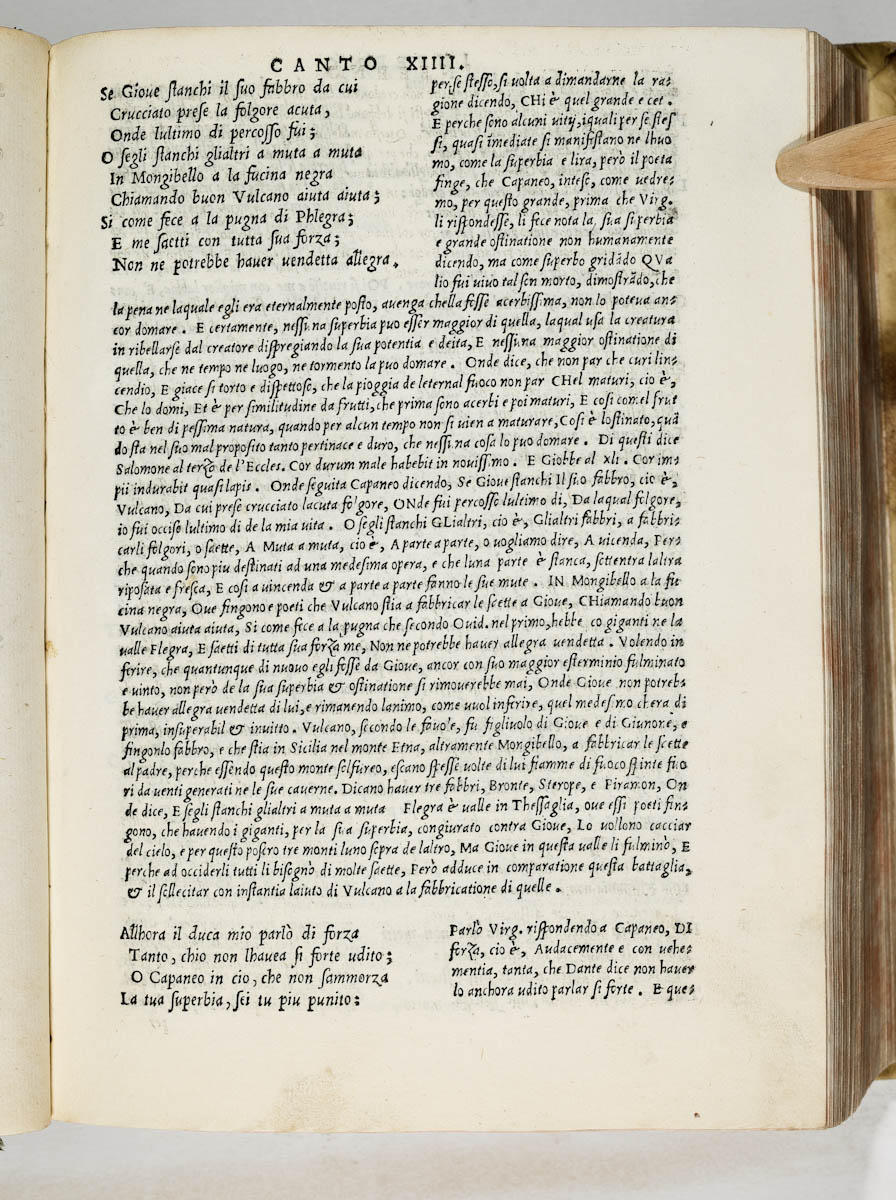 CANTO XIIII.
Se Gioue stanchi il suo fabbro da cui
Crucciato prese la folgore acuta,
Onde lultimo di percosso fui;
O segli stanchi glialtri a muta a muta
In Mongibello a la fucina negra
Chiamando buon Vulcano aiuta aiuta;
Si come fece a la pugna di Phlegra;
E me saetti con tutta sua forza;
Non ne potrebbe hauer uendetta allegra.
per se stesso, si uolta a dimandarne la ra-
gione dicendo, CHi è quel grande e cet.
E perche sono alcuni uitij, iquali per se stes
si, quasi īmediate si manifistano ne lhuo
mo, come la superbia e lira, però il poeta
finge, che Capaneo, intese, come uedre-
mo, per questo grande, prima che Virg.
li rispondesse, li fece nota la sua superbia
e grande ostinatione non humanamente
dicendo, ma come superbo gridādo QVa
lio fui uiuo tal son morto, dimostrādo, che
la pena ne laquale egli era eternalmente posto, auenga chella fosse acerbissima, non lo poteua an-
cor domare. E certamente, nessuna superbia puo esser maggior di quella, laqual usa la creatura
in ribellarse dal creatore dispregiando la sua potentia e deita, E nessuna maggior ostinatione di
quella, che ne tempo ne luogo, ne tormento la puo domare. Onde dice, che non par che curi lin-
cendio, E giace si torto e dispettoso, che la pioggia de leternal fuoco non par CHel maturi, cio è,
Che lo domi, Et è per similitudine da frutti, che prima sono acerbi e poi maturi, E cosi comel frut
to è ben di pessima natura, quando per alcun tempo non si uien a maturare, Cosi è lostinato, quā
do sta nel suo mal proposito tanto pertinace e duro, che nessuna cosa lo puo domare. Di questi dice
Salomone al terzo de l'Eccles. Cor durum male habebit in nouissimo. E Giobbe al xli. Cor im-
pii indurabit quasi lapis. Onde seguita Capaneo dicendo, Se Gioue stanchi Il suo fabbro, cio è,
Vulcano, Da cui prese crucciato lacuta folgore, ONde fui percosso lultimo di, Da laqual folgore,
io fui occiso lultimo di de la mia uita. O segli stanchi GLialtri, cio è, Glialtri fabbri, a fabbri-
carli folgori, o saette, A Muta a muta, cio è, A parte a parte, o uogliamo dire, A uicenda, Per-
che quando sono piu destinati ad una medesima opera, e che luna parte è stanca, sottentra laltra
riposata e fresca, E cosi a uincenda & a parte a parte fanno le sue mute. IN Mongibello a la fu
cina negra, Oue fingono e poeti che Vulcano stia a fabbricar le saette a Gioue, CHiamando buon
Vulcano aiuta aiuta, Si come fece a la pugna che secondo Ouid. nel primo, hebbe co giganti ne la
ualle Flegra, E saetti di tutta sua forza me, Non ne potrebbe hauer allegra uendetta. Volendo in
ferire, che quantunque di nuouo egli fosse da Gioue, ancor con suo maggior esterminio fulminato
e uinto, non però de la sua superbia & ostinatione si rimouerebbe mai, Onde Gioue non potreb-
be hauer allegra uendetta di lui, e rimanendo lanimo, come uuol inferire, quel medesimo chera di
prima, insuperabil & inuitto. Vulcano, secondo le fauole, fu figliuolo di Gioue e di Giunone, e
fingonlo fabbro, e che stia in Sicilia nel monte Etna, altramente Mongibello, a fabbricar le saette
al padre, perche essendo questo monte solfureo, escano spesse uolte di lui fiamme di fuoco spinte fuo
ri da uenti generati ne le sue cauerne. Dicano hauer tre fabbri, Bronte, Sterope, e Piramon, On
de dice, E segli stanchi glialtri a muta a muta Flegra è ualle in Thessaglia, oue essi poeti fin-
gono, che hauendo i giganti, per la sua superbia, congiurato contra Gioue, Lo uollono cacciar
del cielo, e per questo posero tre monti luno sopra de laltro, Ma Gioue in questa ualle li fulminò, E
perche ad occiderli tutti li bisegnò di molte saette, Però adduce in comparatione questa battaglia,
& il sollecitar con instantia laiuto di Vulcano a la fabbricatione di quelle.
Allhora il duca mio parlò di forza
Tanto, chio non lhauea si forte udito;
O Capaneo in cio, che non sammorza
La tua superbia, sei tu piu punito;
Parlò Virg. rispondendo a Capaneo, DI
forza, cio è, Audacemente e con uehe-
mentia, tanta, che Dante dice non hauer
lo anchora udito parlar si forte. E que-